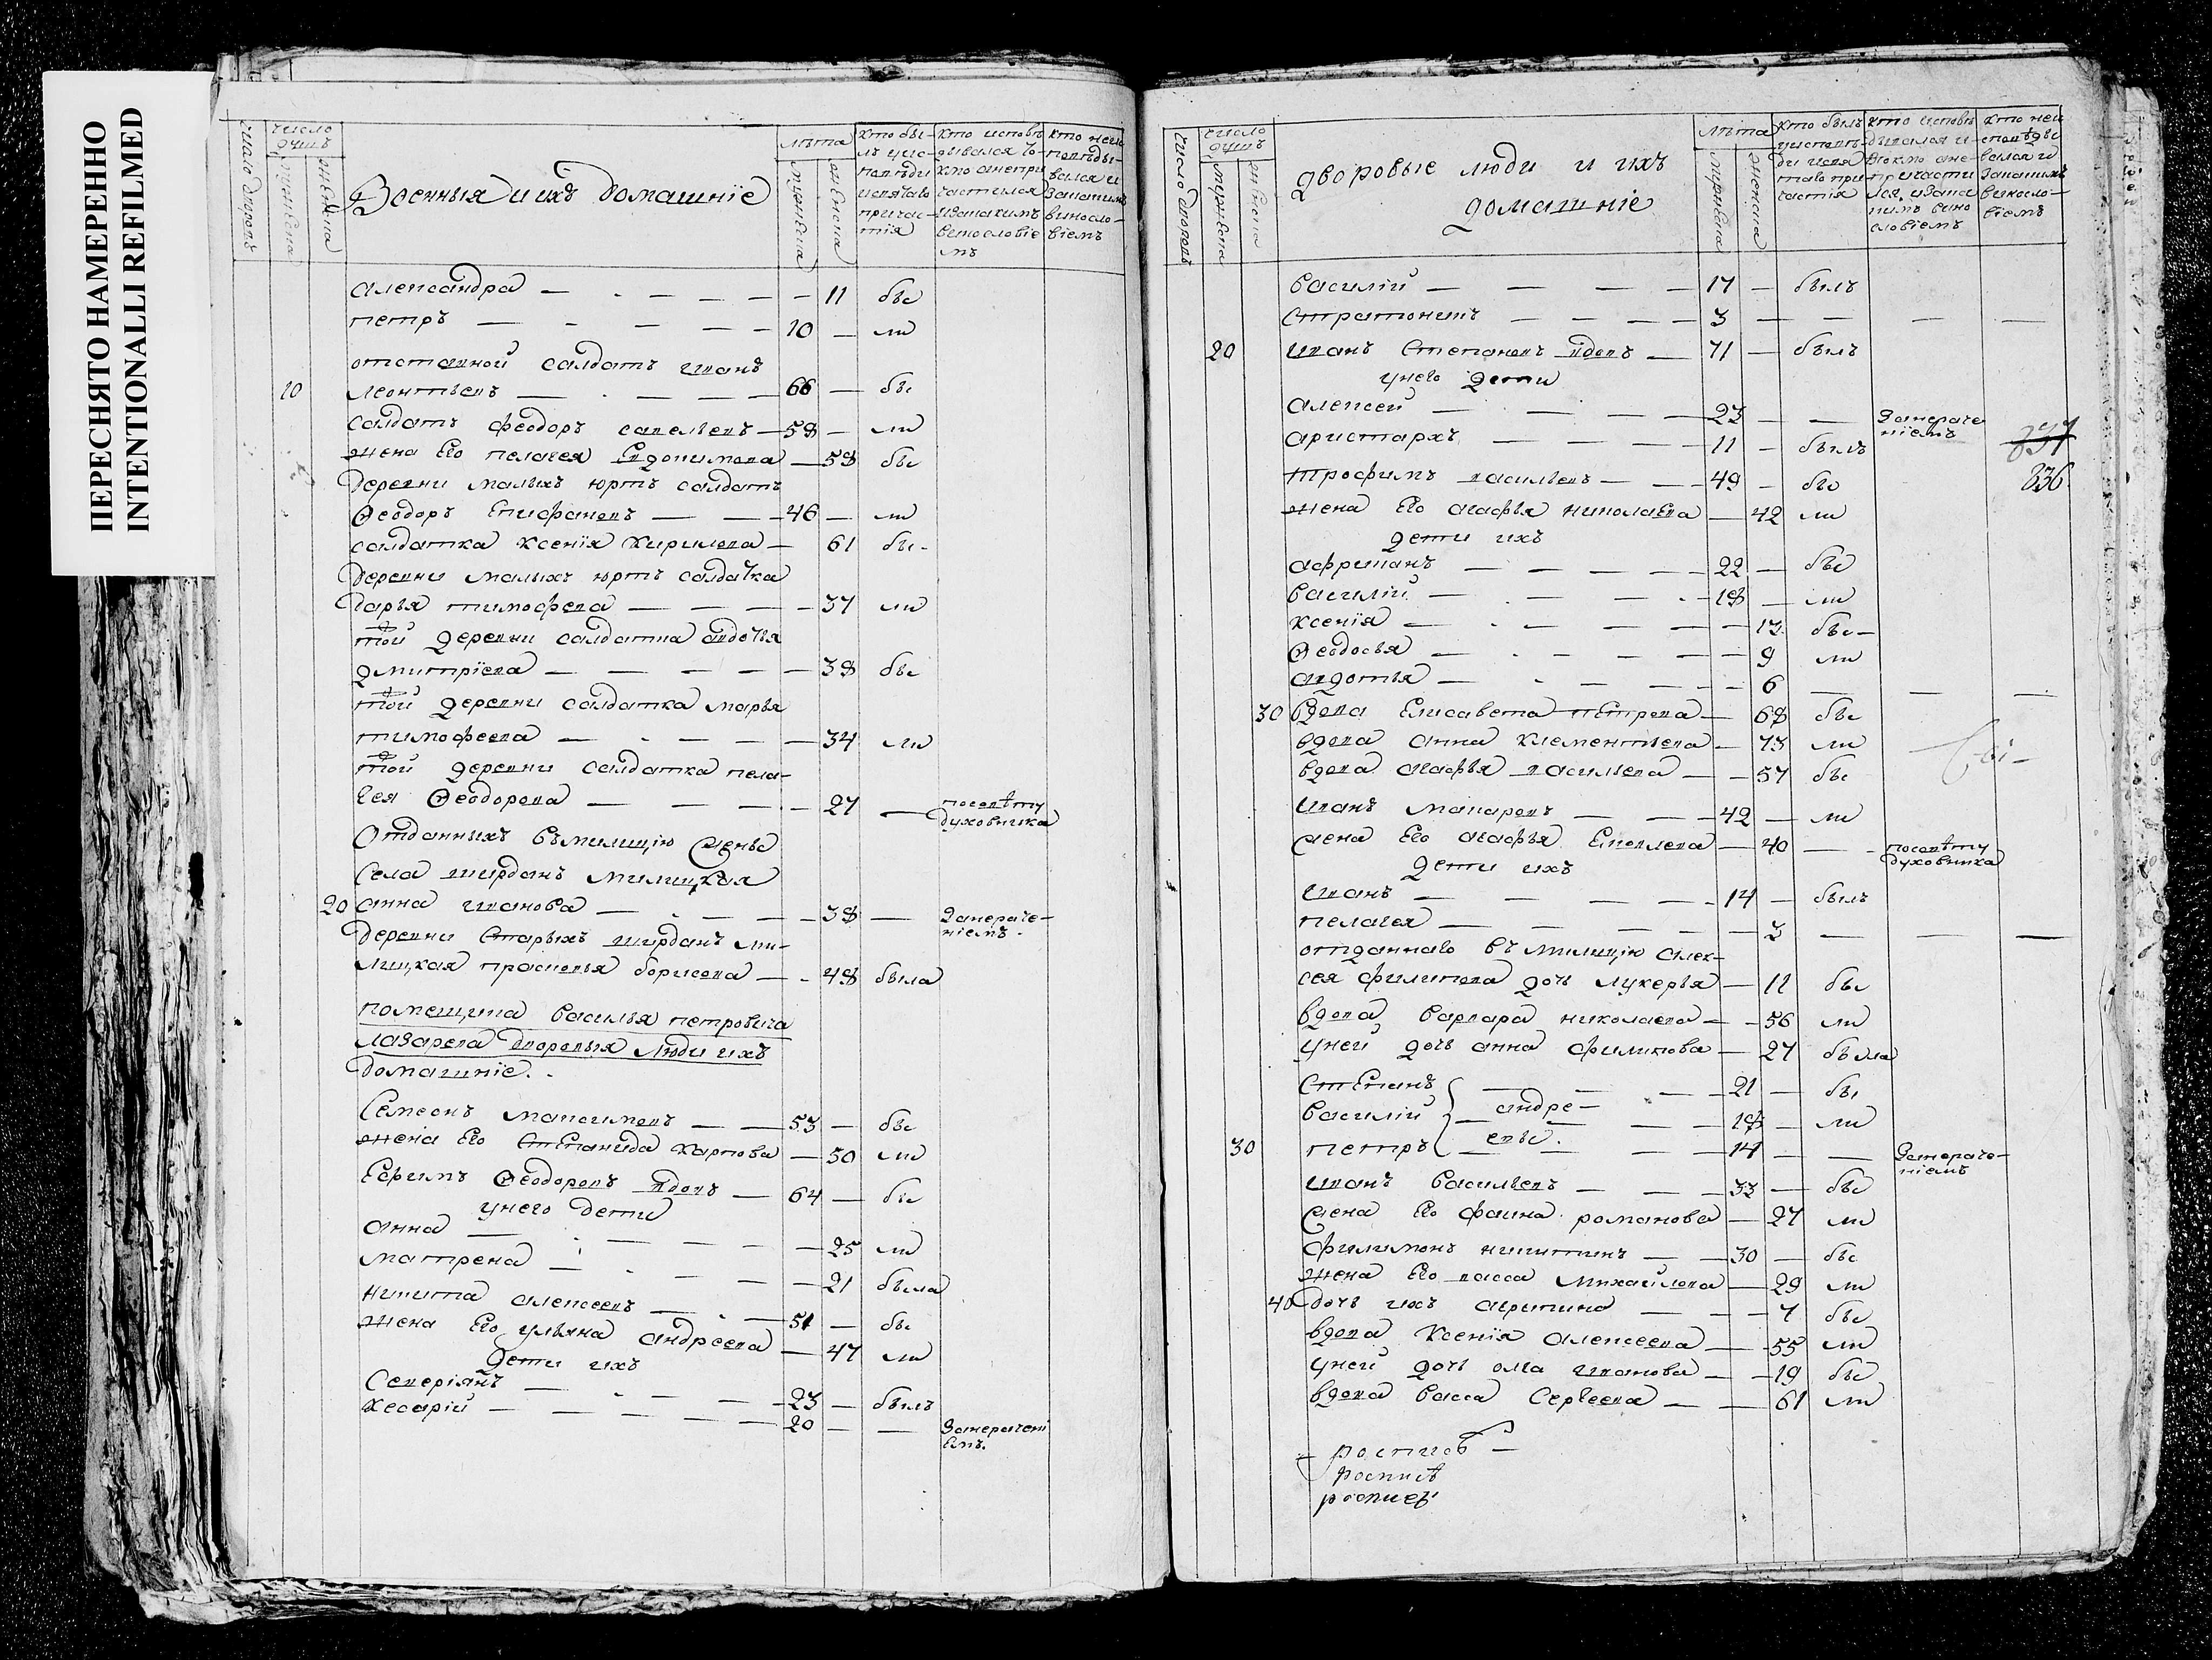 ПЕРЕСНЯТО НАМЕРЕННО
INTENTIONALLI REFILMED
число дворовъ
число душъ
мужеска
женска
Военныя и ихъ домашнїе
лѣта
мужеска
женска
кто бы-
лъ у ис-
повѣди
и св͠таго
причас-
тїя
кто исповѣ
дывался то-
кмо а не при
частился
и за какимъ
винословїе
мъ
кто не и
повѣды-
вался и
за какимъ
виносло-
вїемъ
александра — 11 бы
петръ — 10 — ли
отставной салдатъ иванъ
10 леонтьевъ — 66 — бы
салдатъ феодоръ савельевъ — 58 — ли
жена Его пелагея Евдокимова — 58 бы
деревни малыхъ юртъ салдатъ
Ѳеодоръ Епифановъ — 46 — ли
салдатка ксенїя кирилова — 61 бы
деревни малыхъ юртъ салдатка
дарья тимофеева — 37 ли
той деревни салдатка авдотья
дмитрїева — 38 бы
той деревни салдатка марья
тимофеева — 34 ли
той деревни салдатка пела-
гея Ѳеодорова — 27 — посовѣту духовника
Отданныхъ въ милицїю жены
Села ширданъ милицкая
20 анна иванова — 38 — занераченїемъ
деревни Старыхъ ширданъ ми-
лицкая прасковья борисова — 48 была
помещика василья петровича
лазарева дворовыя люди и ихъ
домашнїе.
Семеонъ максимовъ — 53 — бы
жена Его СтЕпанида карпова — 50 ли
Ефимъ Ѳеодоровъ вдовъ — 64 — бы
у него дети
анна — 25 ли
матрена — 21 была
никита алексеевъ — 51 — бы
жена Его ульяна андреева — 47 ли
дети ихъ
Северїянъ — 23 — былъ
кесарїй — 20 — — занераченїемъ.
число дворовъ
число душъ
мужеска
женска
дворовые люди и ихъ
домашнїе
лѣта
мужеска
женска
кто былъ
у исповѣ-
ди и свя
таго при
частїя
кто исповѣ
дывался и
токмо а не
причасти
лся, и зака
кимъ вино
словїемъ
кто не и
споведы
вался и
закакимъ
виносло-
вїемъ
василїй — 17 — былъ
Стратоникъ — 3 — — — —
20 иванъ Степановъ вдовъ — 71 — былъ
у него дети
алексей — 23 — — занераченїемъ
аристархъ — 11 — былъ
837
трофимъ васильевъ — 49 — бы
836
жена Его агафья николаЕва — 42 ли
дети ихъ
африканъ — 22 — бы
василїй — 18 — ли
ксенїя — 13 бы
Ѳеодосья — 9 ли
авдотья — 6 — — —
30 вдова Елисавета пЕтрова — 68 бы
вдова анна клементьева — 73 ли
вдова агафья васильева — 57 бы
иванъ макаровъ — 42 — ли
жена Его агафья — 40 — посовѣту духовника
дети ихъ
иванъ — 14 — былъ
пелагея — 3 — — —
отданнаго въ милицїю алек-
сея филипова дочь лукерья — 11 бы
вдова варвара николаева — 56 ли
у ней дочь анна филипова — 27 была
СтЕпанъ — 21 — бы
василїй андре- — 18 — ли
30 петръ евы. — 14 — — занераченїемъ
иванъ васильевъ — 33 — бы
жена Его фаина романова — 27 ли
филимонъ никитинъ — 30 — бы
жена Его васса михайлова — 29 ли
40 дочь ихъ агрипина — 7 бы
вдова ксенїя алексеева — 55 ли
у ней дочь иванова — 19 бы
вдова васса Сергеева — 61 ли
росписѣ
росписѣ
росписѣ